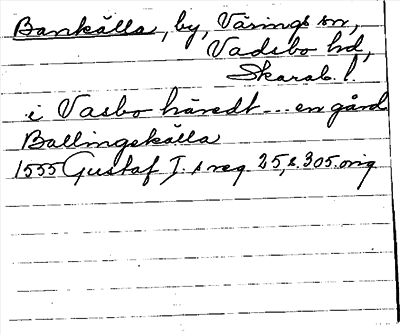 Bankälla, by, Värings sn,
Vadsbo hd,
Skarab. l.
i Vasbo häredt --- en gård
Ballingskälla
1555 Gustaf I.s reg. 25, s. 305. orig